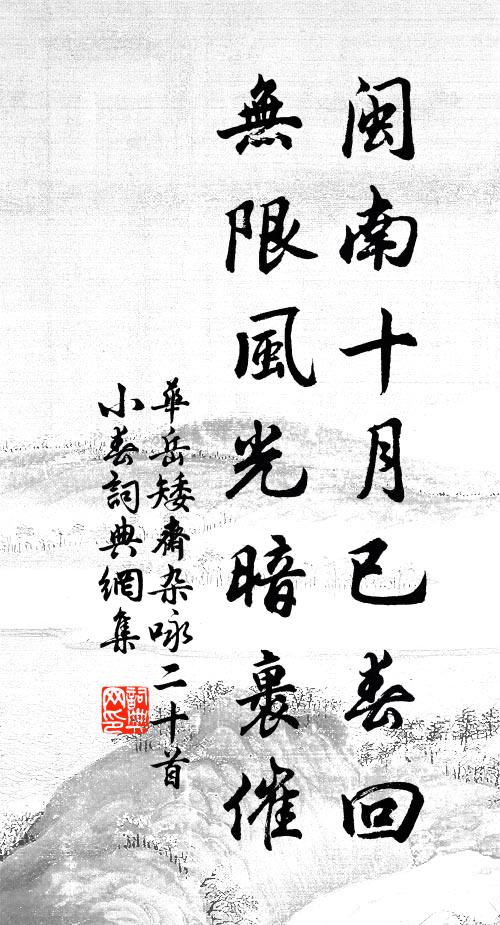 閩南十月已春回
無限風光暗裏催
華岳矮齋杂咏二十首
小春詞典網集
詞典
网印